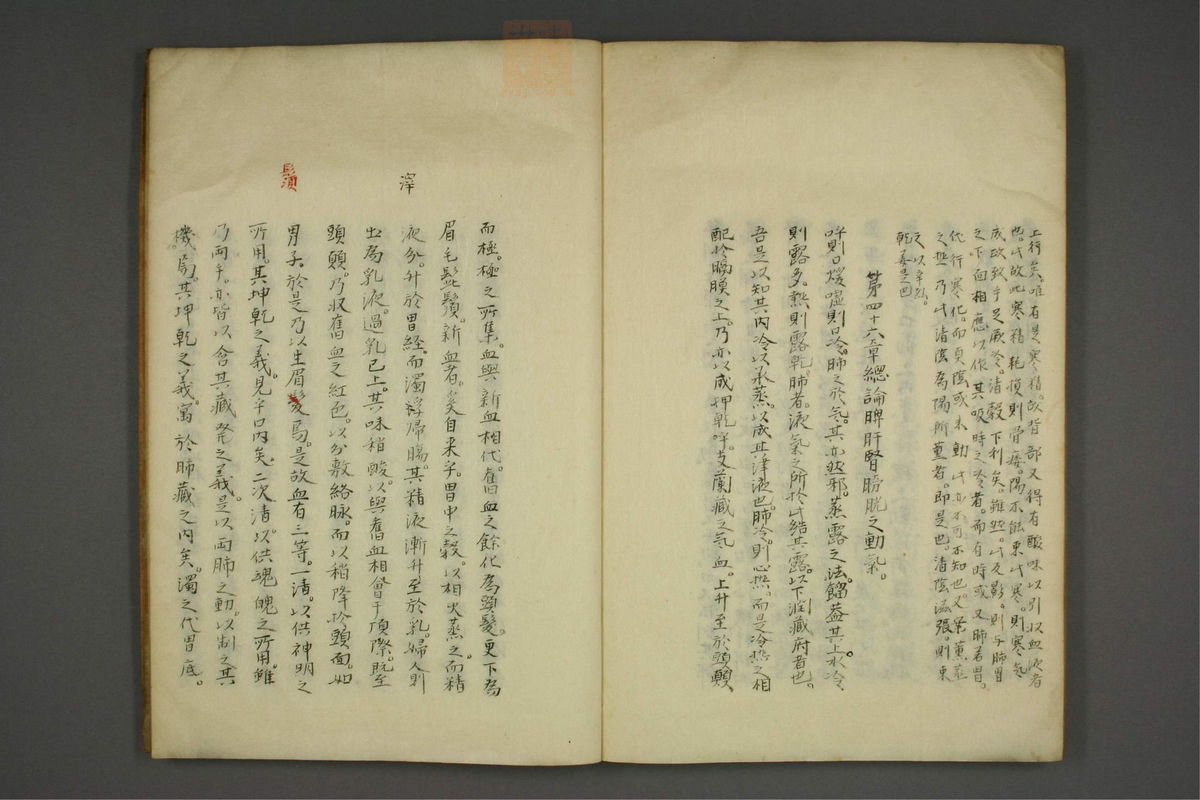 上行矣。唯有是寒精。故背部又得有酸味以引以血液者
也。以故此寒精耗損則骨痿。陽不能束此寒。則寒氣
成政致手足厥冷。清穀下利矣。雖些。以及影。則与肺胃
之下面相應以作其吸時之冷者。而有時或又肺若胃。
化行寒化。而貞陰或未動。此亦不可不知也。又葉薫蒸
之熱乃此清陰為陽所薫者。即是也。清陰滋張。則東
之以辛烈。
乾姜是巴
第四十六章總論脾肝腎膀胱之動氣。
呼則口煖嘘則口冷。肺之於氣。其亦然邪。蒸露之法。餾蓋其上水冷
則露多。熱則露乾。肺者。液氣之所於此結其露。以下潤藏府者也。
吾是以知其内冷以承蒸。以成其津液也。肺冷。則心熱。而是冷熱之相
配於腸膜之上。乃亦以成押乾。呼。支蘭藏之気血。上升至於頭顖、
而極。極之所集。血與新血相代。舊血之餘化為頭髮。更下為
眉毛髭鬚。新血者。奚自来乎。胃中之穀。以相火蒸之。而精
澤
液分。升於胃経。而濁滓帰腸。其精液漸升至於乳。婦人則
出為乳液。過乳已上。其味稍酸。以與舊血相會于頂際。既至
頭顖。乃収舊血之紅色。以分敷絡脉。而以稍降於頭面。如
鬚
胃子。於是乃以生眉髪焉。是故血有三等。一清。以供神明之
所用。其坤乾之義。見乎口内矣。二次清。以供魂魄之所用。雖
乃両手。亦皆以含其藏発之義。是以両肺之動。以制之其
機焉。其坤乾之義。寓於肺藏之内矣。濁之代胃底。